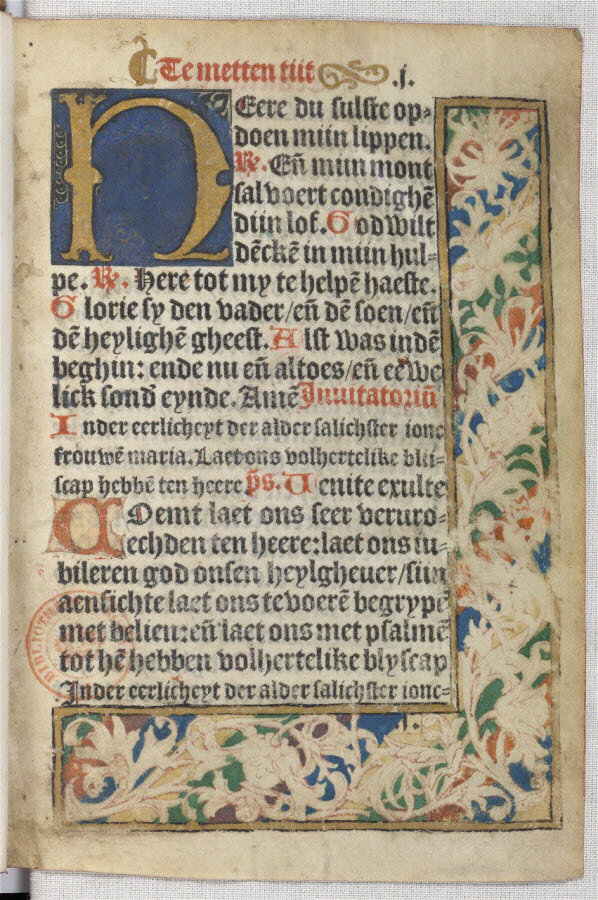 Te metten tiit .j.
HEere du sulste op-
doen miin lippen.
℟. Eñ miin mont
sal voert condighē
diin lof. God wilt
dēckē in miin hul-
pe. ℟. Here tot my te helpē haeste.
Glorie sy den vader/eñ dē soen/eñ
dē heylighē gheest. Alst was in dē
beghin: ende nu eñ altoes/eñ eēwe
lick sond eynde. Amē Inuitatoriū
Inder eerlicheyt der alder salichster ionc
frouwē maria. Laet ons volhertelike bli-
scap hebbē ten heere p̄s. Uenite exulte
COemt laet ons seer veruro-
echden ten heere: laet ons iu-
bileren god onsen heylgheuer/siin
aensichte laet ons tevoerē begrypē
met belien: eñ laet ons met psalmē
tot hē hebben volhertelike blyscap
Inder eerlicheyt der alder salichster ionc-
BIBLIOTH